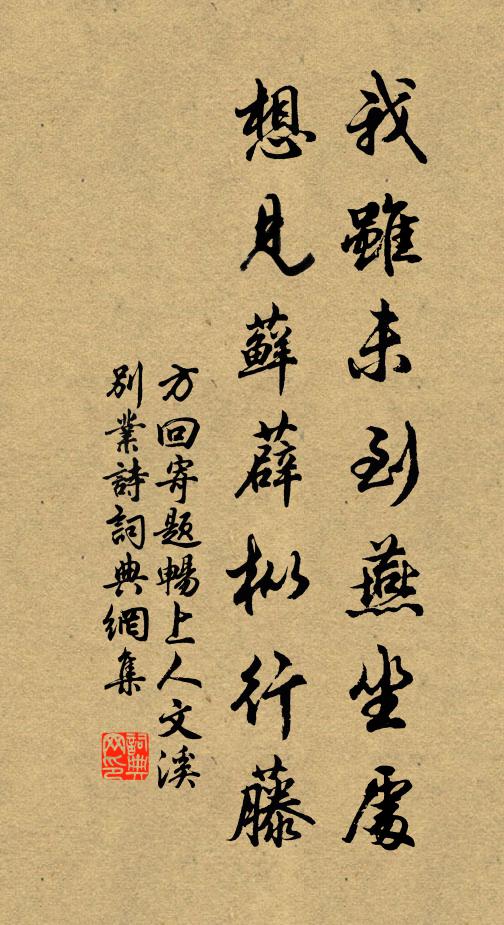 我雖未到燕坐處
想見蘚薜枞行藤
方回寄題暢上人文溪
別業詩詞典網集
詞典網印